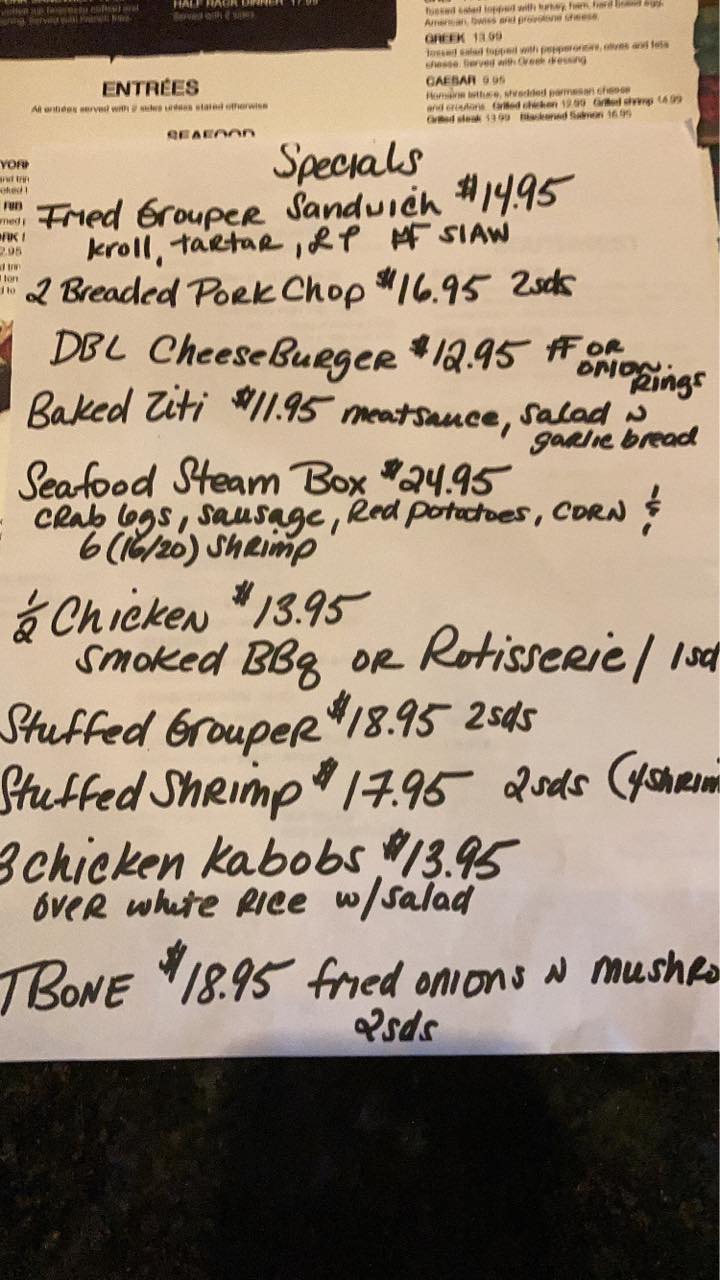 HALF RACK DINNER 17.99
Served with 2 sides
tossed salad topped with turkey, ham, hard boiled egg,
American, Swiss and provolone cheese.
GREEK 13.99
Tossed salad topped with pepperoncini, olives and feta
cheese. Served with Greek dressing.
CAESAR 9.95
Romaine lettuce, shredded parmesan cheese
and croutons. Grilled chicken 12.99 Grilled shrimp 14.99
Grilled steak 13.99 Blackened Salmon 16.95
ENTRÉES
All entrées served with 2 sides unless stated otherwise
SEAFOOD
Specials
Fried Grouper Sandwich $14.95
kroll, tartar, LT FF Slaw
2 Breaded Pork Chop $16.95 2sds
DBL CheeseBurger $12.95 FF OR
onion
Rings
Baked Ziti $11.95 meatsauce, salad N
garlic bread
Seafood Steam Box $24.95
crab legs, sausage, Red potatoes, corn &
6 (16/20) shrimp
1/2 Chicken $13.95
smoked BBq or Rotisserie / 1sd
Stuffed Grouper $18.95 2sds
Stuffed Shrimp $17.95 2sds (4shrim
3 chicken kabobs $13.95
over white rice w/salad
TBONE $18.95 fried onions N mushro
2sds